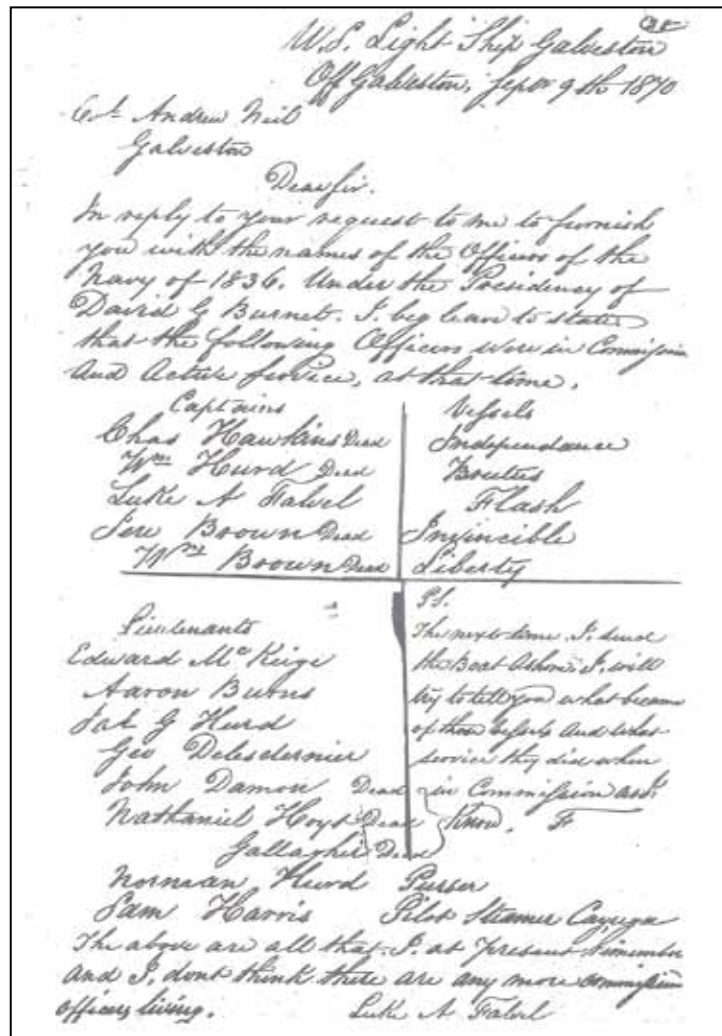 U.S. Light Ship Galveston
Off Galveston, Septr 9th 1870
Col. Andrew Neil
Galveston
Dear Sir.
In reply to your request to me to furnish
you with the names of the Officers of the
Navy of 1836. Under the Presidency of
David G Burnet. I beg leave to state
that the following Officers were in Commission
and Active Service, at that time.
Captains
Vessels
Chas Hawkins Dead
Independance
Wm Hurd Dead
Brutus
Luke A Falvel
Flash
Jere Brown Dead
Invincible
Wm Brown Dead
Liberty
Lieutenants
Edward
Aaron Burns
G Hurd
Geo Delesdernier
John Damon Dead
Nathaniel Hoyt Dead
Gallagher Dead
Norman Hurd Purser
Sam Harris Pilot Steamer Cayuga
Ps.
The next time I send
the Boat Ashore, I will
try to tell you what became
of those vessels and what
service they did when
in Commission as I
Know. F
The above are all that I at present remember
and I dont think there are any more commission
officers living.
Luke A Falvel